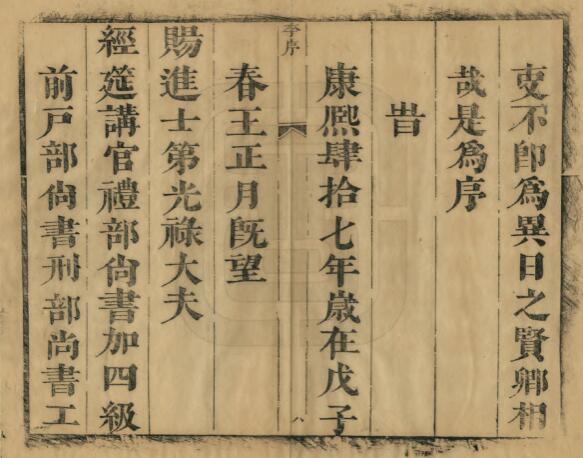 吏不卽爲異日之賢卿相
哉是爲序
旹
康熈肆拾七年歲在戊子
李序
八
春王正月旣望
賜進士第光祿大夫
經筵講官禮部尙書加四級
前戸部尙書刑部尙書工